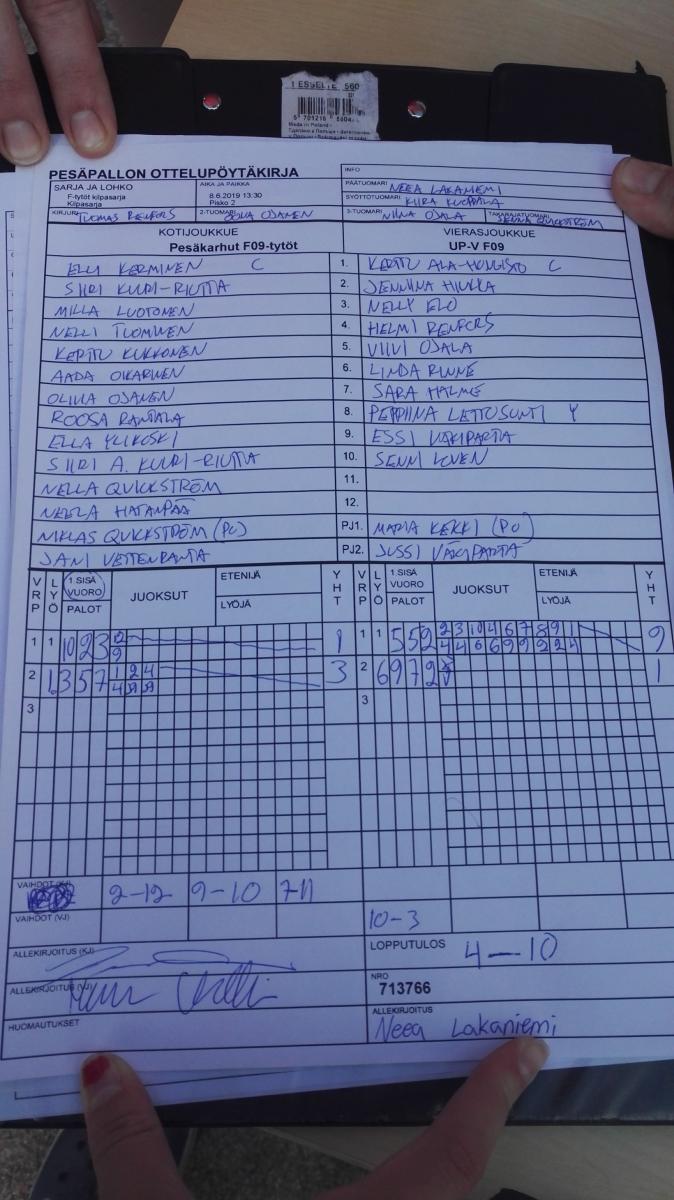 1 ESSELTE 560
Made in Poland
PESÄPALLON OTTELUPÖYTÄKIRJA
INFO
SARJA JA LOHKO
F-tytöt kilpasarja
Kilpasarja
AIKA JA PAIKKA
8.6.2019 13:30
Pisko 2
PÄÄTUOMARI NEEA LAKANIEMI
SYÖTTÖTUOMARI KIIRA KUOPPALA
KIRJURI TUOMAS RENFORS
2-TUOMARI OJANEN
3-TUOMARI NIINA OJALA
TAKARAJATUOMARI SENNA QUICKSTRÖM
KOTIJOUKKUE
Pesäkarhut F09-tytöt
VIERASJOUKKUE
UP-V F09
ELLI KERMINEN C
1. KERTTU ALA-HONGISTO C
SIIRI KUURI-RIUTTA
2. JENNIINA HIUKKA
MILLA LUOTONEN
3. NELLY ELO
NELLI TUOMINEN
4. HELMI RENFORS
KERTTU KUKKONEN
5. VIIVI OJALA
AADA OIKARINEN
6. LINDA RINNE
OLIVIA OJANEN
7. SARA HALME
ROOSA RANTALA
8. PEPPIINA LEHTOSUNTI Y
ELLA YLIKOSKI
9. ESSI VÄKIPARTA
SIIRI A. KUURI-RIUTTA
10. SENNI LOVEN
NELLA QUICKSTRÖM
11.
NEELA HATANPÄÄ
12.
NIKLAS QUICKSTRÖM (PJ)
PJ1. MARIA KEKKI (PJ)
JANI VETTENRANTA
PJ2. JUSSI VÄKIPARTA
VRP LYÖ 1.SISÄ VUORO PALOT JUOKSUT ETENIJÄ LYÖJÄ YHT
VRP LYÖ 1.SISÄ VUORO PALOT JUOKSUT ETENIJÄ LYÖJÄ YHT
1 1 10 2 3 12 9 1
1 1 5 5 2 2 3 10 4 6 7 8 9 1 9
4 4 6 6 9 9 2 2 4
2 1 3 5 7 1 2 4 3
2 6 9 7 2 1
3
3
VAIHDOT (KJ) 2-12 9-10 7-11
VAIHDOT (VJ) 10-3
ALLEKIRJOITUS (KJ)
LOPPUTULOS 4-10
ALLEKIRJOITUS (VJ)
NRO
713766
HUOMAUTUKSET
ALLEKIRJOITUS
Neea Lakaniemi